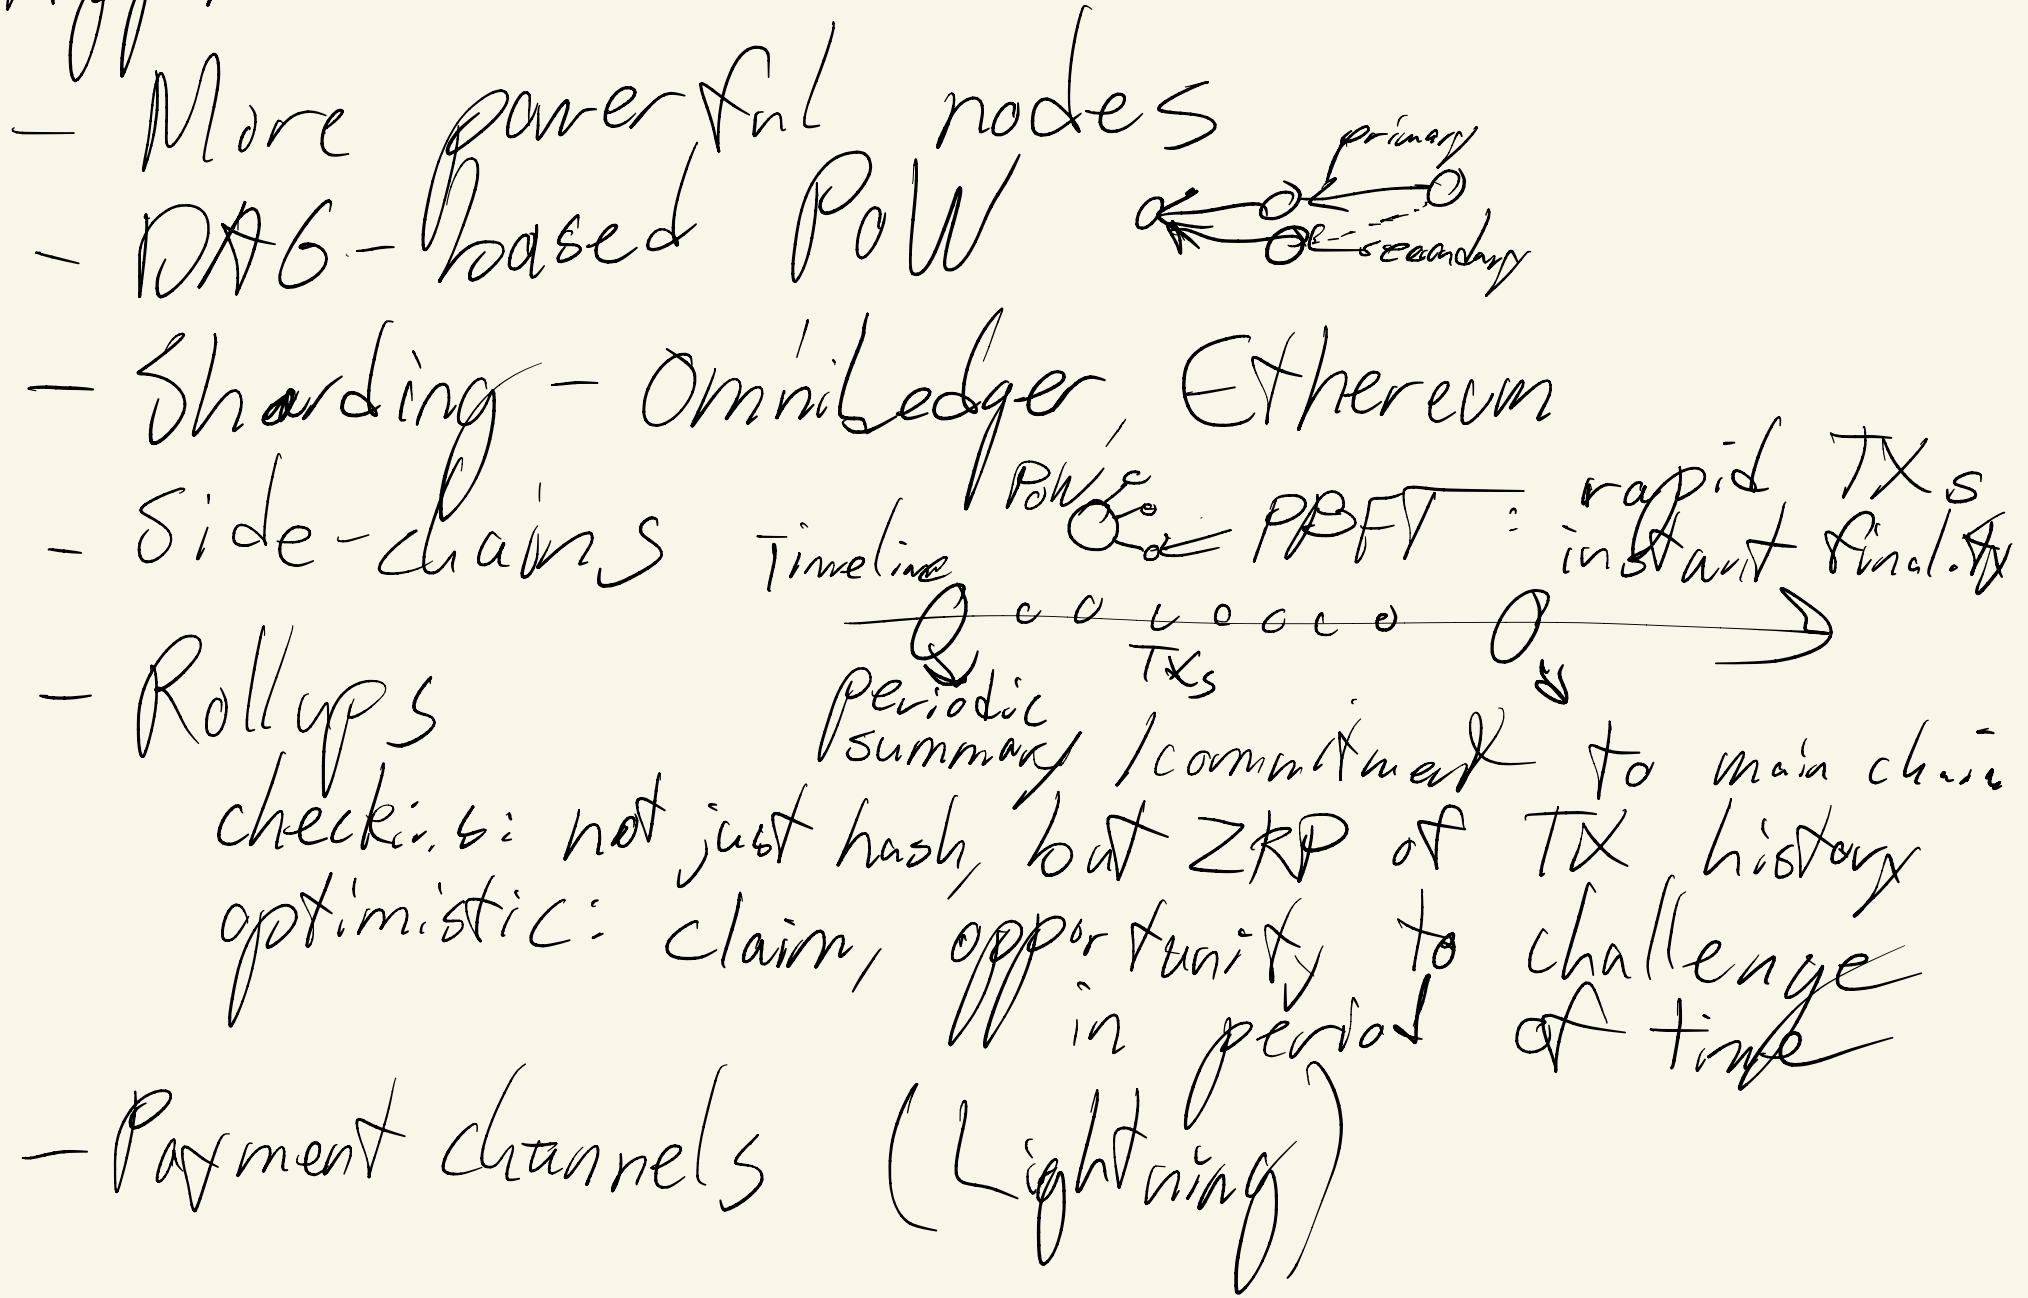 - More powerful nodes
primary
- DAG-based PoW
secondary
- Sharding - OmniLedger, Ethereum
- Side-chains
PoW
PBFT : rapid TXs
instant finality
Timeline
TXs
- Rollups
periodic
summary / commitment to main chain
checking: not just hash, but ZKP of TX history
optimistic: claim, opportunity to challenge
in period of time
- Payment channels (Lightning)